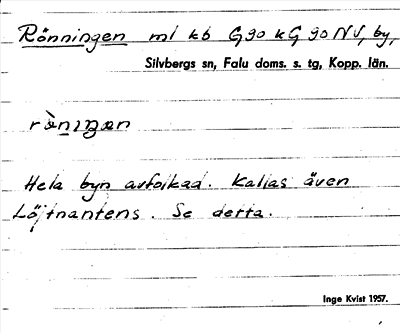 Rönningen ml kb G90 kG 90 NV, by,
Silvbergs sn, Falu doms. s. tg, Kopp. län.
rǜniŋən
Hela byn avfolkad. Kallas även
Löjtnantens. Se detta.
Inge Kvist 1957.